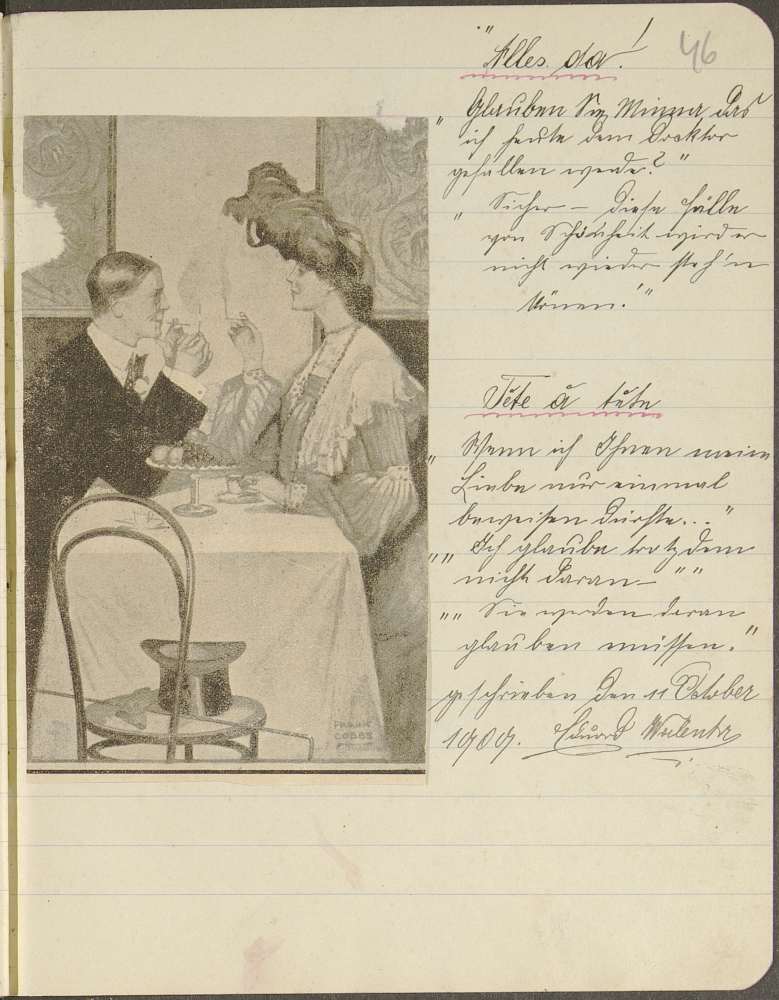 46
"Alles da!
"Glauben Sie, Minna, das
ich heute dem Docktor
gefallen werde?"
"Sicher – diese Fülle
von Schönheit wird er
nicht wieder steh'n
können!"
Tête à tête
"Wenn ich Ihnen meine
Liebe nur einmal
beweisen dürfte..."
""Ich glaube trotzdem
nicht daran– ""
""Sie werden daran
glauben müssen."
geschrieben den 11 October
1909. Eduard
FRANK